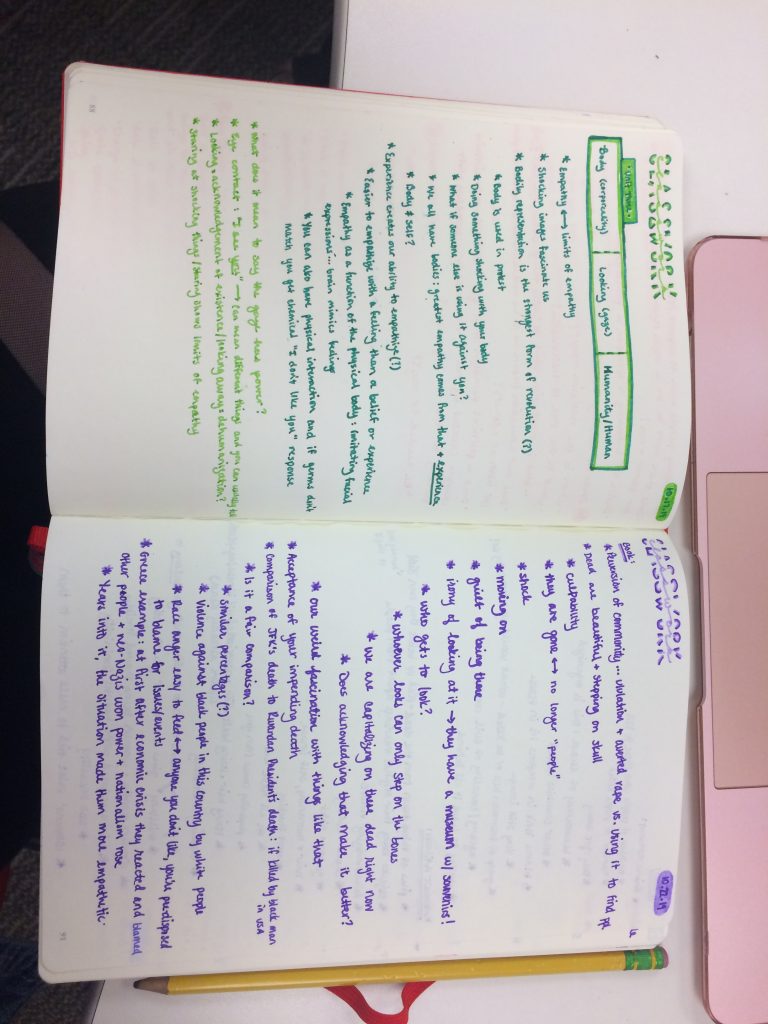 CLASSWORK
10.17.19
Body (corporeality) | Looking (gaze) | Humanity/Human
* Empathy ↔ limits of empathy
* Shocking images fascinate us
* Bodily representation is the strongest form of revolution (?)
* Body is used in protest
* Doing something shocking with your body
* What if someone else is using it against you?
* We all have bodies: greatest empathy comes from that + experience
* Body ≠ self?
* Experience creates our ability to empathize (?)
* Easier to empathize with a feeling than a belief or experience
* Empathy as a function of the physical body: imitating facial
expressions... brain mimics feelings
* You can also have physical interaction and if germs don't
match you get chemical "I don't like you" response
* What does it mean to say the gaze has power?
* Eye contact: "I see you" → can mean different things and you can
* Looking = acknowledgement of existence/looking away = dehumanization?
* Staring at shocking things/staring shows limits of empathy
88
CLASSWORK
10.22.19
Book:
* Perversion of community... violation + averted rape vs. using it to find ppl
* Dead are beautiful + stepping on skull
* culpability
* they are gone ↔ no longer "people"
* shock
* moving on
* guilt of being there
* irony of looking at it → they have a museum w/ souvenirs!
* who gets to look?
* whoever looks can only step on the bones
* we are capitalizing on these dead right now
* Does acknowledging that make it better?
* our weird fascination with things like that
* Acceptance of your impending death
* Comparison of JFK's death to Rwandan President's death: if killed by black man
in USA
* Is it a fair comparison?
* Similar percentages (?)
* Violence against black people in this country by white people
* Race anger easy to feel ↔ anyone you don't like, you're predisposed
to blame for issues/events
* Greece example: at first after economic crisis they reacted and blamed
other people + neo-Nazis won power + nationalism rose
* Years into it, the situation made them more empathetic.